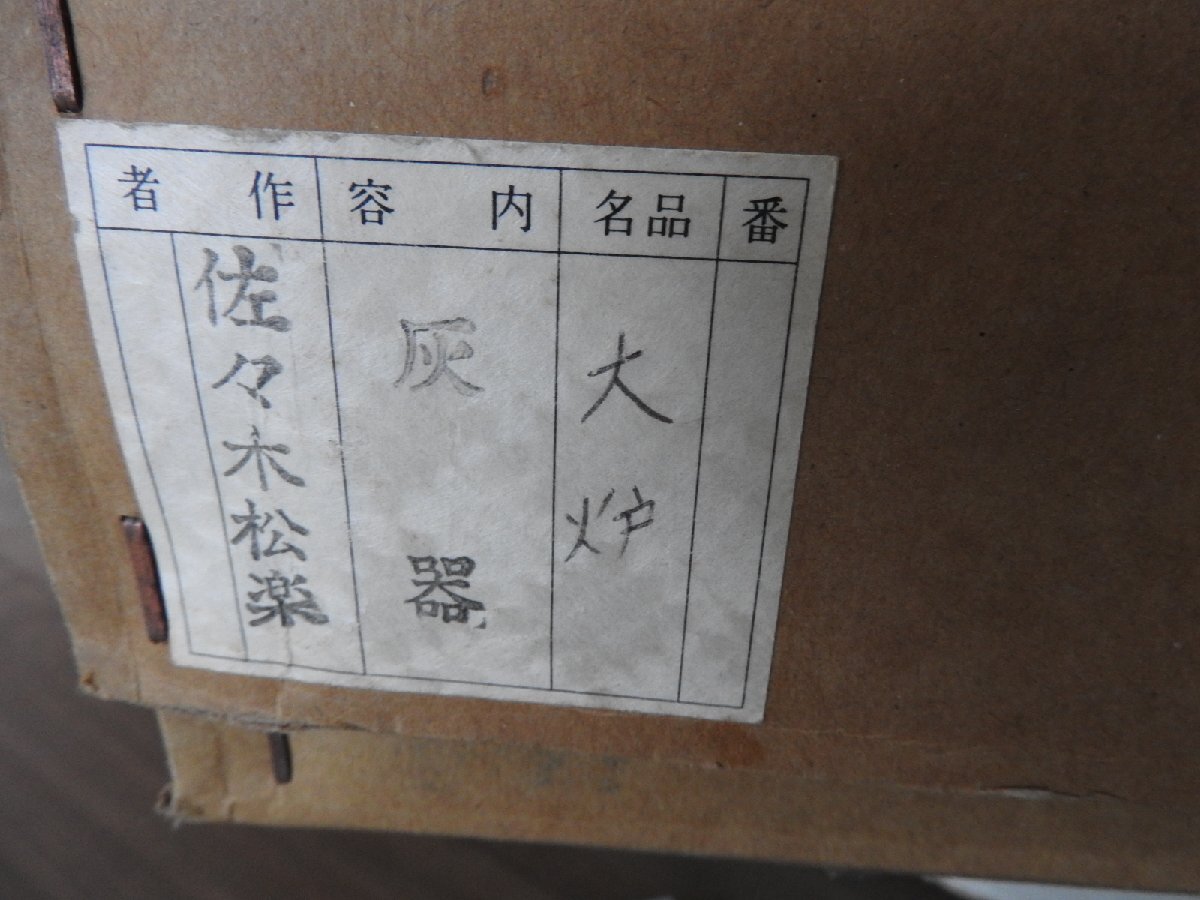 番
品名
内容
作者
大炉
灰器
佐々木松楽